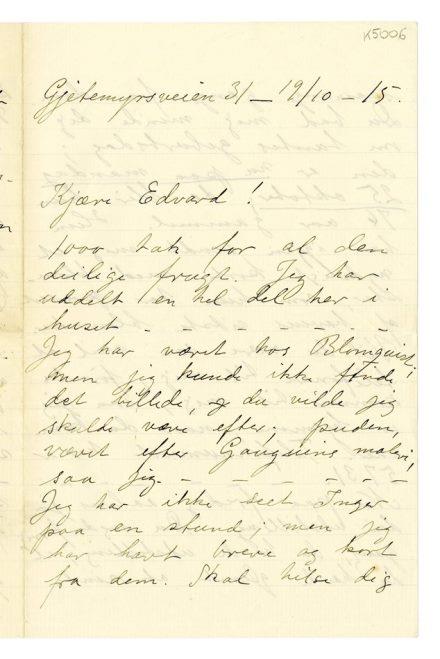 K5006
Gjetemyrsveien 31 — 19/10 – 15.
Kjære Edvard !
1000 tak for al den
deilige frugt. Jeg har
uddelt en hel del her i
huset - - - - - -
Jeg har været hos Blomquist;
men jeg kunde ikke finde
det billede, du vilde jeg
skulde være efter; puden,
været efter Gauguins maleri,
saa jeg. - - - - - -
Jeg har ikke seet Inger
paa en stund; men jeg
har havt breve og kort
fra dem. Skal hilse dig